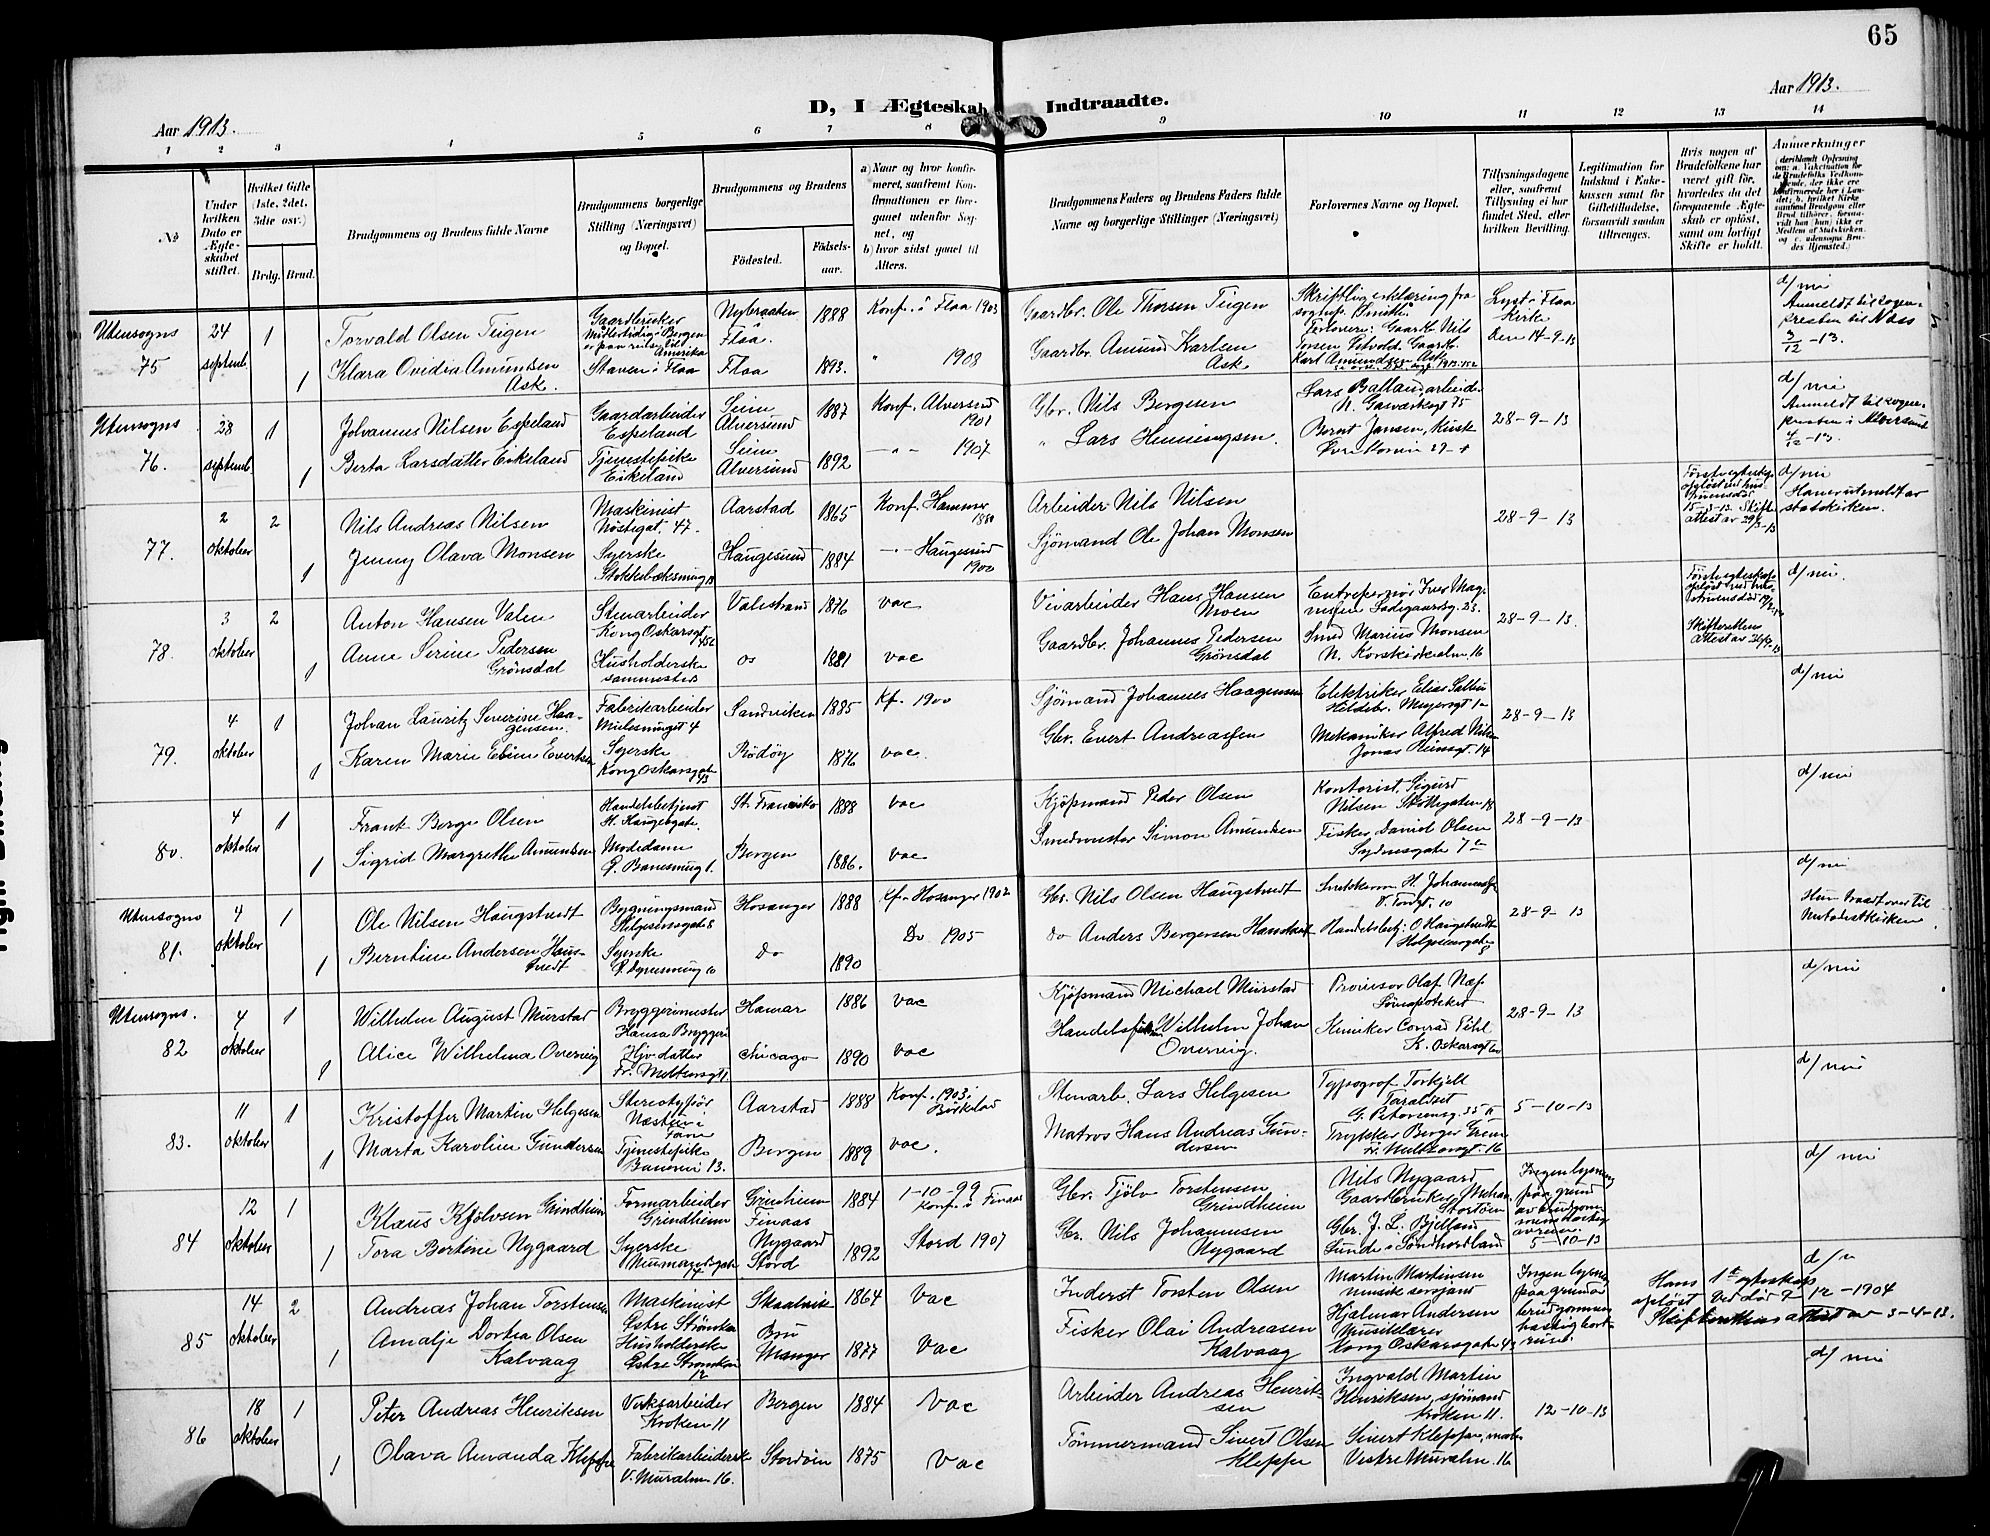 65
Aar 1913.
Aar 1913.
D, I Ægteskab Indtraadte.
1 2 3 4 5 6 7 8 9 10 11 12 13 14
No
Under hvilken Dato er Ægteskabet stiftet.
Hvilket Gifte (1ste, 2det, 3die osv.)
Brdg. Brud.
Brudgommens og Brudens fulde Navne
Brudgommens borgerlige Stilling (Næringsvei) og Bopæl.
Brudgommens og Brudens
Fødested.
Fødselsaar.
a) Naar og hvor konfirmeret, saafremt Konfirmationen er foregaaet udenfor Sognet, og
b) hvor sidst gaaet til Alters.
Brudgommens Faders og Brudens Faders fulde Navne og borgerlige Stillinger (Næringsvei)
Forlovernes Navne og Bopæl.
Tillysningsdagene eller, saafremt Tillysning ei har fundet Sted, efter hvilken Bevilling.
Legitimation for Indskud i Enkekassen samt for Giftetilladelse, forsaavidt saadan tiltrænges.
Hvis nogen af Brudefolkene har været gift før, hvorledes da det foregaaende Ægteskab er opløst, samt om lovligt Skifte er holdt.
Anmerkninger
Utensogns 75
24 septemb
1
1
Torvald Olsen Teigen
Klara Ovidia Amundsen Ask.
Gaardbruker
Staven i Flaa
Flaa.
Flaa
1888
1893.
Konf. i Flaa 1903
" 1908
Gaardbr. Ole Thorsen Teigen
Gaardbr. Amund Karlsen Ask
Lyst i Flaa Kirke
Den 14-9-13
d/nei
Anmeldt til sogne-
presten til Næss
3/12 -13.
Utensogns 76.
28 septemb
1
1
Johannes Nilsen Espeland
Berta Larsdatter Eikeland
Gaardarbeider Espeland
Tjenestepike Eikeland
Seim Alversund
Seim Alversund
1887
1892
Konf. Alversund 1901
- " - 1907
Gbr. Nils Bergesen
" Lars Henningsen.
Lars Balland, arbeid.
N. Gasverksgt 75
Bernt Jansen,
28-9-13
d/nei
Anmeldt til sogne-
presten i Alversund
4/12 -13.
77.
2 oktober
2
1
Nils Andreas Nilsen
Jenny Olava Monsen
Maskinist
Nöstegat. 47.
Syerske
Aarstad
Haugesund
1865
1884
Konf. Hammer 1880
- " - Haugesund 1900
Arbeider Nils Nilsen
Sjömand Ole Johan Monsen
28-9-13
d/nei
Han er utmeldt av
statskirken.
78.
3 oktober
2
1
Anton Hansen Valen
Anne Serine Pedersen Grönsdal
Stenarbeider
Kong Oskarsgt
Husholderske
sammesteds
Valestrand
Os
1876
1881
vac
vac
Veiarbeider Hans Hansen Moen
Gaardbr. Johannes Pedersen Grönsdal
Entreprenör Iver Mag-
nesen Ladegaardsg. 23.
Smed Marius Monsen
N. Korskirkealm. 16
28-9-13.
d/nei.
79.
4 oktober
1
1
Johan Lauritz Severine Haa-
gensen.
Karen Marie Eline Evertsen
Fabrikarbeider
Mulesmuget 4
Syerske
Kong Oskarsgate
Sandviken
Rödöy
1885
1876
Kf. 1900
vac.
Sjömand Johannes Haagensen
Gbr. Evert Andreassen
Elektriker Elias
Mekaniker Alfred Nilsen
Jonas Reinsgt. 14
28-9-13
d/nei
80.
4 oktober
1
1
Frank Berge Olsen
Sigrid Margrethe Amundsen
Handelsbetjent
H. Haugesgate.
Modedame
St. Francisko
Bergen
1888
1886.
vac
vac
Kjöpmand Peder Olsen
Smedmester Simon Amundsen
Kontorist Sigurd
Nilsen Skottegaten 18
Fisker Daniel Olsen
Sydnesgate 7
28-9-13
d/nei
Utensogns 81.
4 oktober
1
1
Ole Nilsen Haugstvedt
Berntine Andersen Haus-
tvedt
Bygningsmand
Helgesensgate 8
Syerske
Hosanger
Do
1888
1890
Kf. Hosanger 1902
Do 1905
Gbr. Nils Olsen Haugstvedt
do Anders Bergersen
Handelsbetj. O Haugstvedt
Helgesensgate 8
28-9-13
d/nei
Hun traadt over til
Metodistkirken
Utensogns. 82
4 oktober
1
1
Wilhelm August Murstad
Alice Wilhelmina Overvig
Bryggerimester
Hansa Bryggeri
Hjv datter
Fr. Meltzersgt 1
Hamar
Chicago
1886
1890
vac
vac
Kjöpmand Michael Murstad
Wilhelm Johan Overvig.
Provisor Olaf Næss
Löveapoteket
Kemiker Conrad Pihl
K. Oskarsgt
28-9-13
d/nei
83.
11 oktober
1
1
Kristoffer Martin Helgesen
Marta Karoline Gundersen
Stereotypör
Næstun i Fane
Tjenestepike
Baneveien 13.
Aarstad
Bergen
1888
1889
Konf. 1903 i
Birkeland
vac.
Stenarb. Lars Helgesen
Matros Hans Andreas Gun-
dersen
Typograf Torkjell
Taraldset
Trykker Berger Grean
Fr. Meltzersgt. 16
5-10-13
d/nei
84
12 oktober
1
1
Klaus Kjölvsen Grindheim
Tora Bertine Nygaard
Formarbeider
Grindheim
Syerske
Grindheim
Finaas
Nygaard
Stord
1884
1892
1-10-99
Konf. i Finaas
Stord 1907
Gbr. Tjölv Torstensen
Grindheim
Gbr. Nils Johannesen
Nygaard
Nils Nygaard
Gaardbruker
Stordöen
Gbr. J. L. Bjelland
Sunde i Söndhordland
Ingen lysning
paa grund
av brudgom-
mens hastige
avreise.
5-10-13
d/nei
85
14 oktober
2
1
Andreas Johan Torstensen
Amalje Dortea Olsen Kalvaag
Maskinist
Östre Strömkai
Husholderske
Östre Strömkai 12
Skaalvik
Bru
Manger
1864
1877
Vac
Vac
Inderst Torsten Olsen
Fisker Olai Andreasen Kalvaag
Martin Martinsen
musik sersjand
Hjalmar Andersen
Musiklærer
Kong Oskarsgate 43
Ingen lysning
paa grund av
brudgommens
hastig bort-
reise.
Hans 1ste egteskap
oplöst ved död 7-12-1904
Skifterettens attest av 3-4-13.
86
18 oktober
1
1
Peter Andreas Henriksen
Olava Amanda Kleppe
Verksarbeider
Kroken 11
Fabrikarbeiderske
V. Muralm. 16.
Bergen
Stordöen
1884
1875
Vac
Vac
Arbeider Andreas Henrik-
sen
Tömmermand Sivert Olsen Kleppe
Ingvald Martin
Henriksen, sjömand
Kroken 11.
Sivert Kleppe,
Vestre Muralm. 16
12-10-13
d/nei